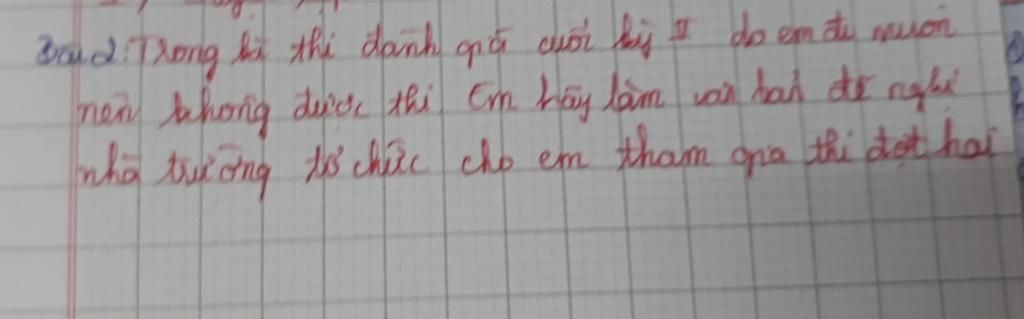 Bài 2: Trong kì thi đánh giá cuối kỳ II do em đi muộn
nên không được thi Em hãy làm văn bản đề nghị
nhà trường tổ chức cho em tham gia thi đợt hai